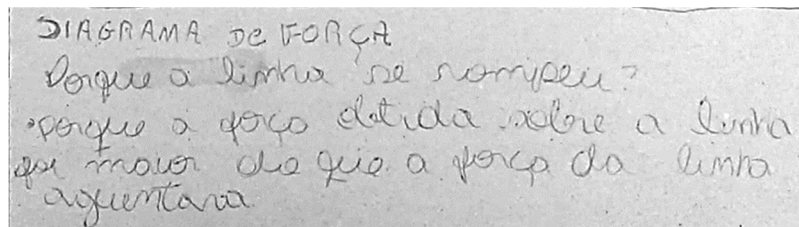 DIAGRAMA DE FORÇA
Porque a linha se rompeu?
porque a força obtida sobre a linha
foi maior do que a força da linha
aguentava